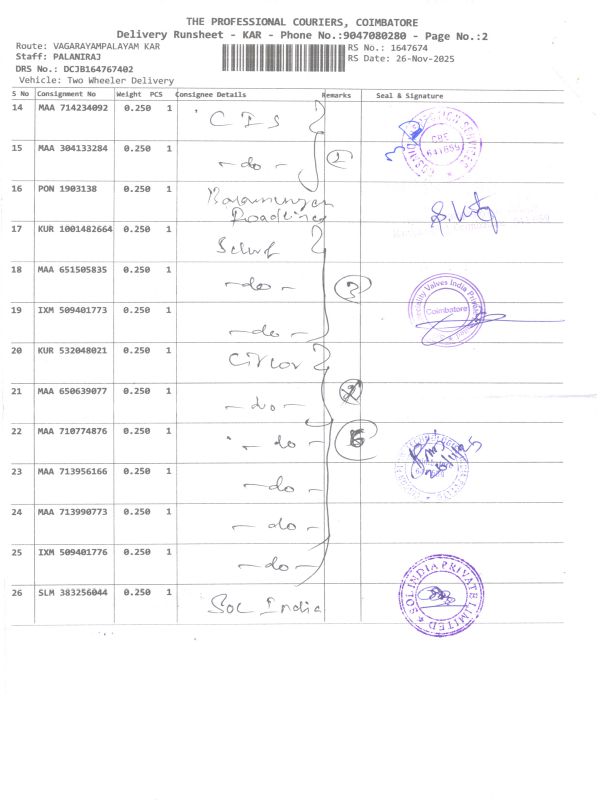 THE PROFESSIONAL COURIERS, COIMBATORE
Delivery Runsheet - KAR - Phone No.:9047080280 - Page No.:2
Route: VAGARAYAMPALAYAM KAR
RS No.: 1647674
Staff: PALANIRAJ
RS Date: 26-Nov-2025
DRS No.: DCJB164767402
Vehicle: Two Wheeler Delivery
S No Consignment No Weight PCS Consignee Details Remarks Seal & Signature
14 MAA 714234092 0.250 1 CIS
15 MAA 304133284 0.250 1 -do- 2
16 PON 1903138 0.250 1 Roadlines
17 KUR 1001482664 0.250 1
18 MAA 651505835 0.250 1 -do- 3
19 IXM 509401773 0.250 1 -do-
20 KUR 532048021 0.250 1
21 MAA 650639077 0.250 1 -do-
22 MAA 710774876 0.250 1 -do- 6
23 MAA 713956166 0.250 1 -do-
24 MAA 713990773 0.250 1 -do-
25 IXM 509401776 0.250 1 -do-
26 SLM 383256044 0.250 1 Sol India
CBE
641659
Valves India Private
Coimbatore
26/11/25
SOL INDIA PRIVATE LIMITED